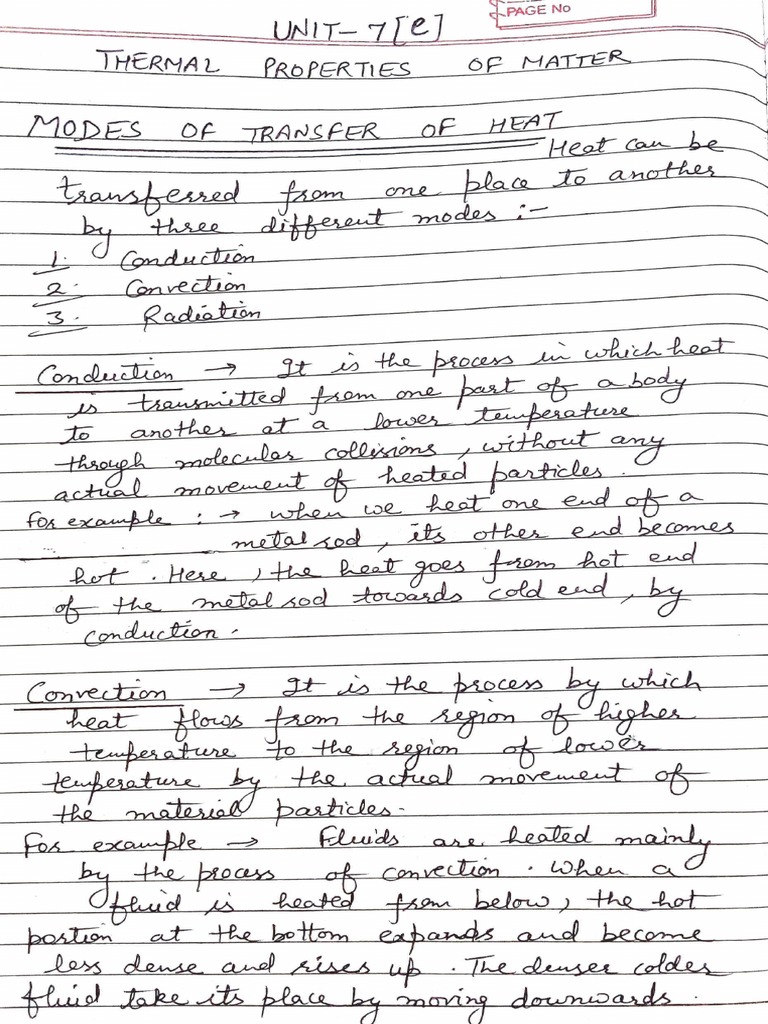 PAGE No
UNIT-7[e]
THERMAL PROPERTIES OF MATTER
MODES OF TRANSFER OF HEAT
Heat can be
transferred from one place to another
by three different modes :-
1. Conduction
2. Convection
3. Radiation
Conduction → It is the process in which heat
is transmitted from one part of a body
to another at a lower temperature
through molecular collisions, without any
actual movement of heated particles.
For example : → when we heat one end of a
metal rod, its other end becomes
hot. Here, the heat goes from hot end
of the metal rod towards cold end, by
conduction.
Convection → It is the process by which
heat flows from the region of higher
temperature to the region of lower
temperature by the actual movement of
the material particles.
For example → Fluids are heated mainly
by the process of convection. When a
fluid is heated from below, the hot
portion at the bottom expands and become
less dense and rises up. The denser colder
fluid take its place by moving downwards.